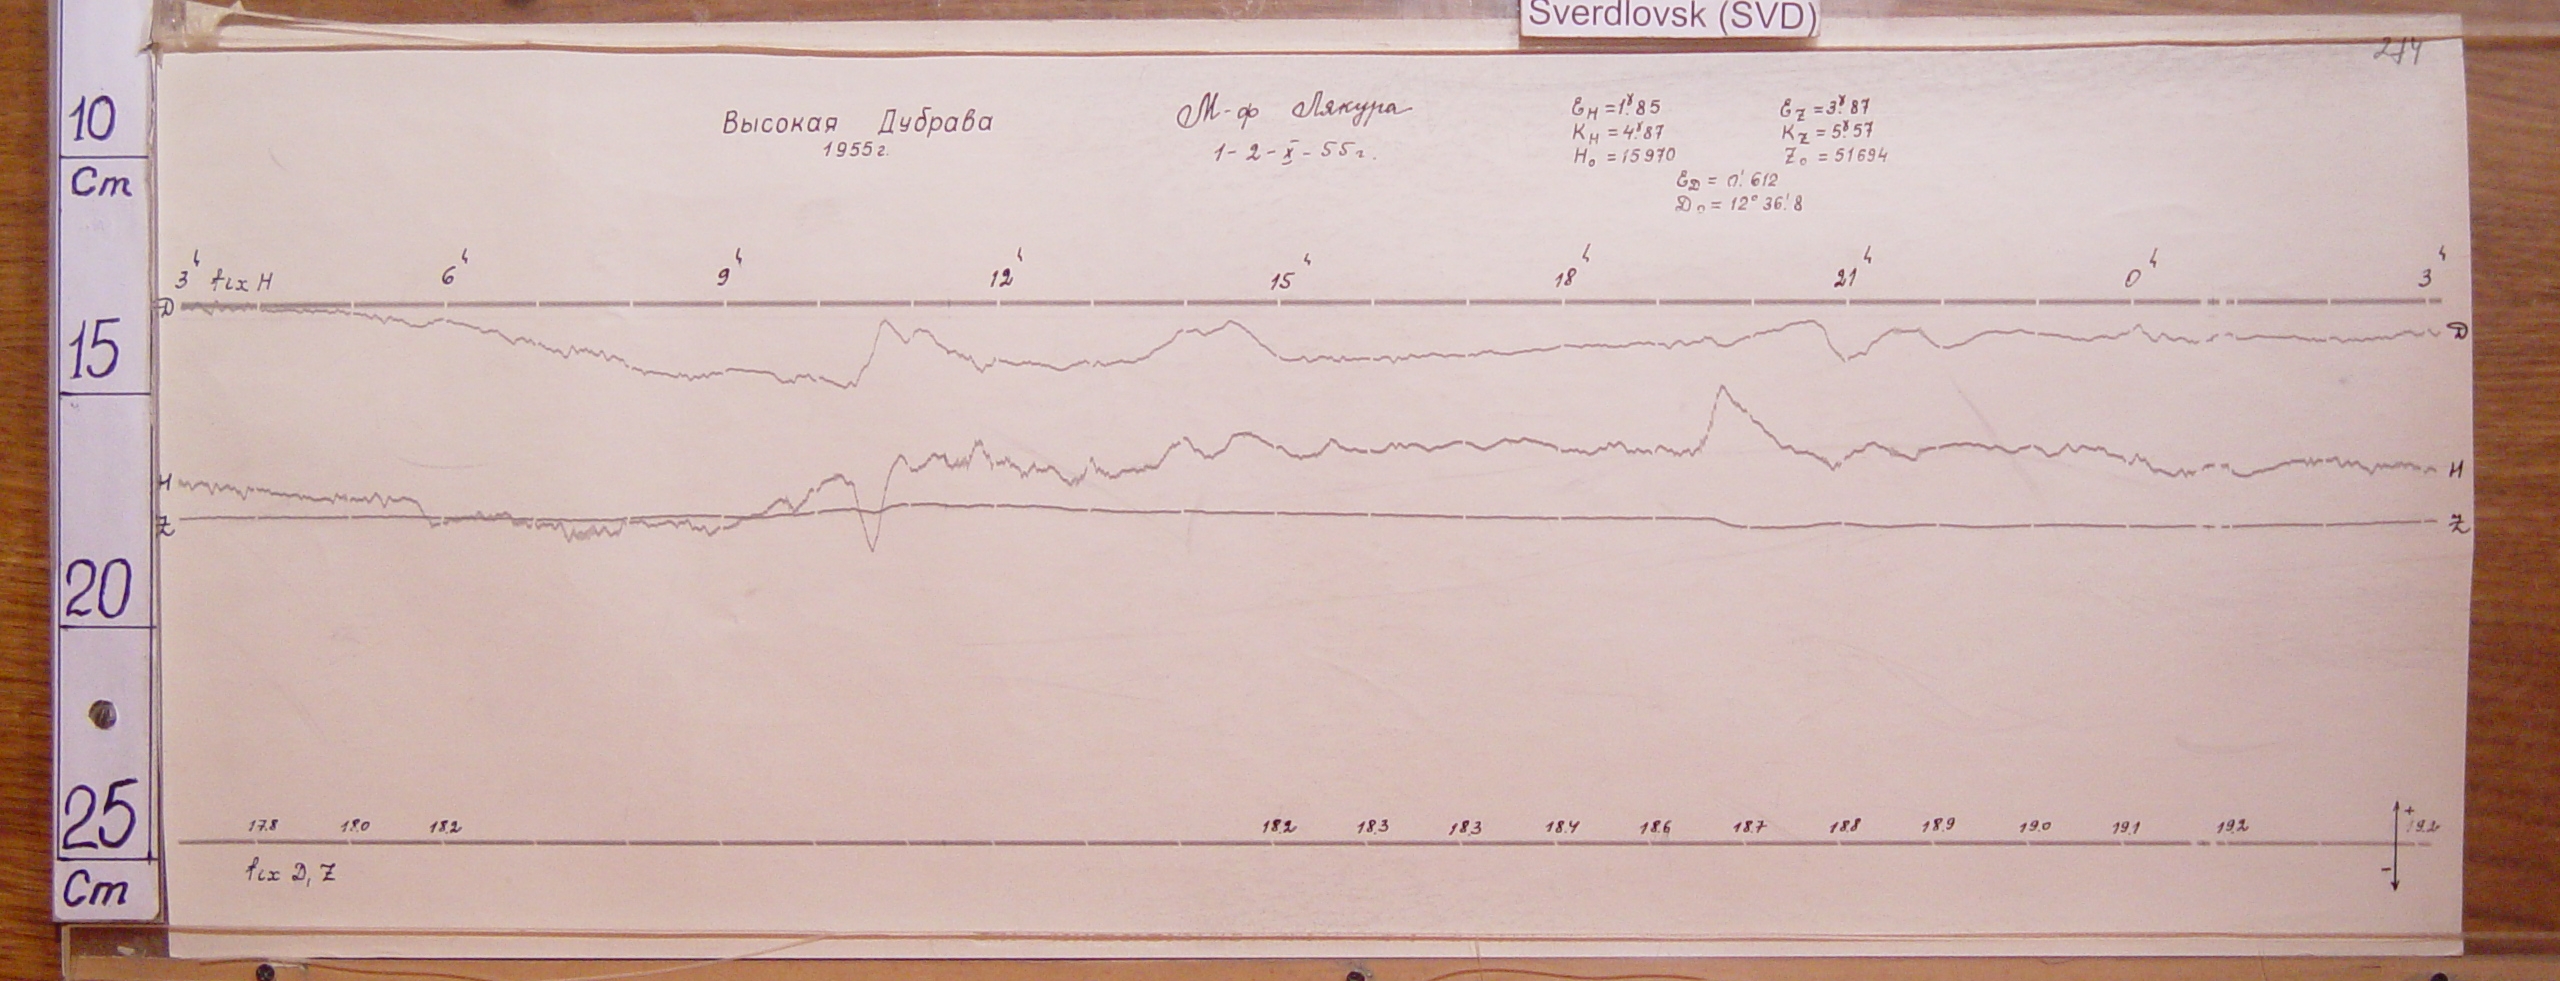 Sverdlovsk (SVD)
10
Cm
15
20
25
Cm
Высокая Дубрава
1955г.
М-ф Лякура
1-2-X-55г.
Ɛн =1ˠ85
Kн =4ˠ87
H₀ =15970
Ɛz =3ˠ87
Kz =5ˠ57
Z₀ =51694
ƐD = 0'.612
D₀ = 12° 36'.8
3ʰ fix H 6ʰ 9ʰ 12ʰ 15ʰ 18ʰ 21ʰ 0ʰ 3ʰ
D D
H H
Z Z
17.8 18.0 18.2 18.2 18.3 18.3 18.4 18.6 18.7 18.8 18.9 19.0 19.1 19.2 19.2
+
-
fix D, Z